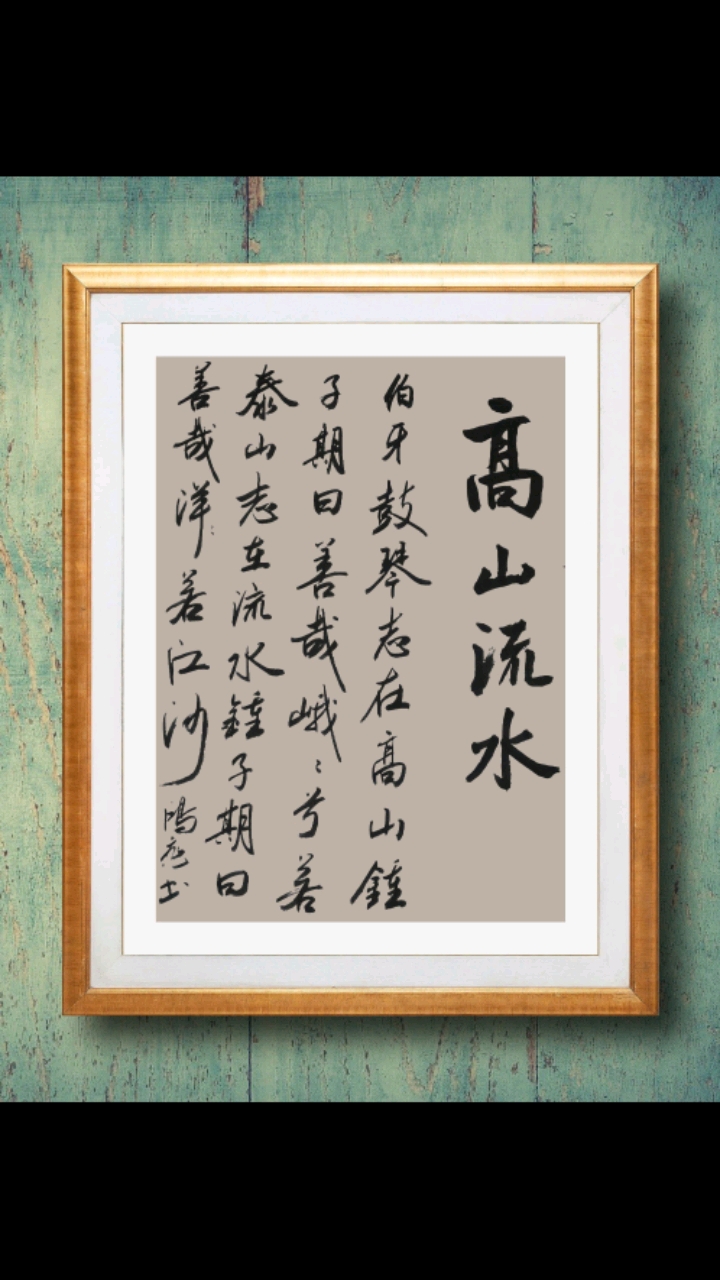 高山流水
伯牙鼓琴志在高山鍾
子期曰善哉峨〻兮若
泰山志在流水鍾子期曰
善哉洋〻若江河
书